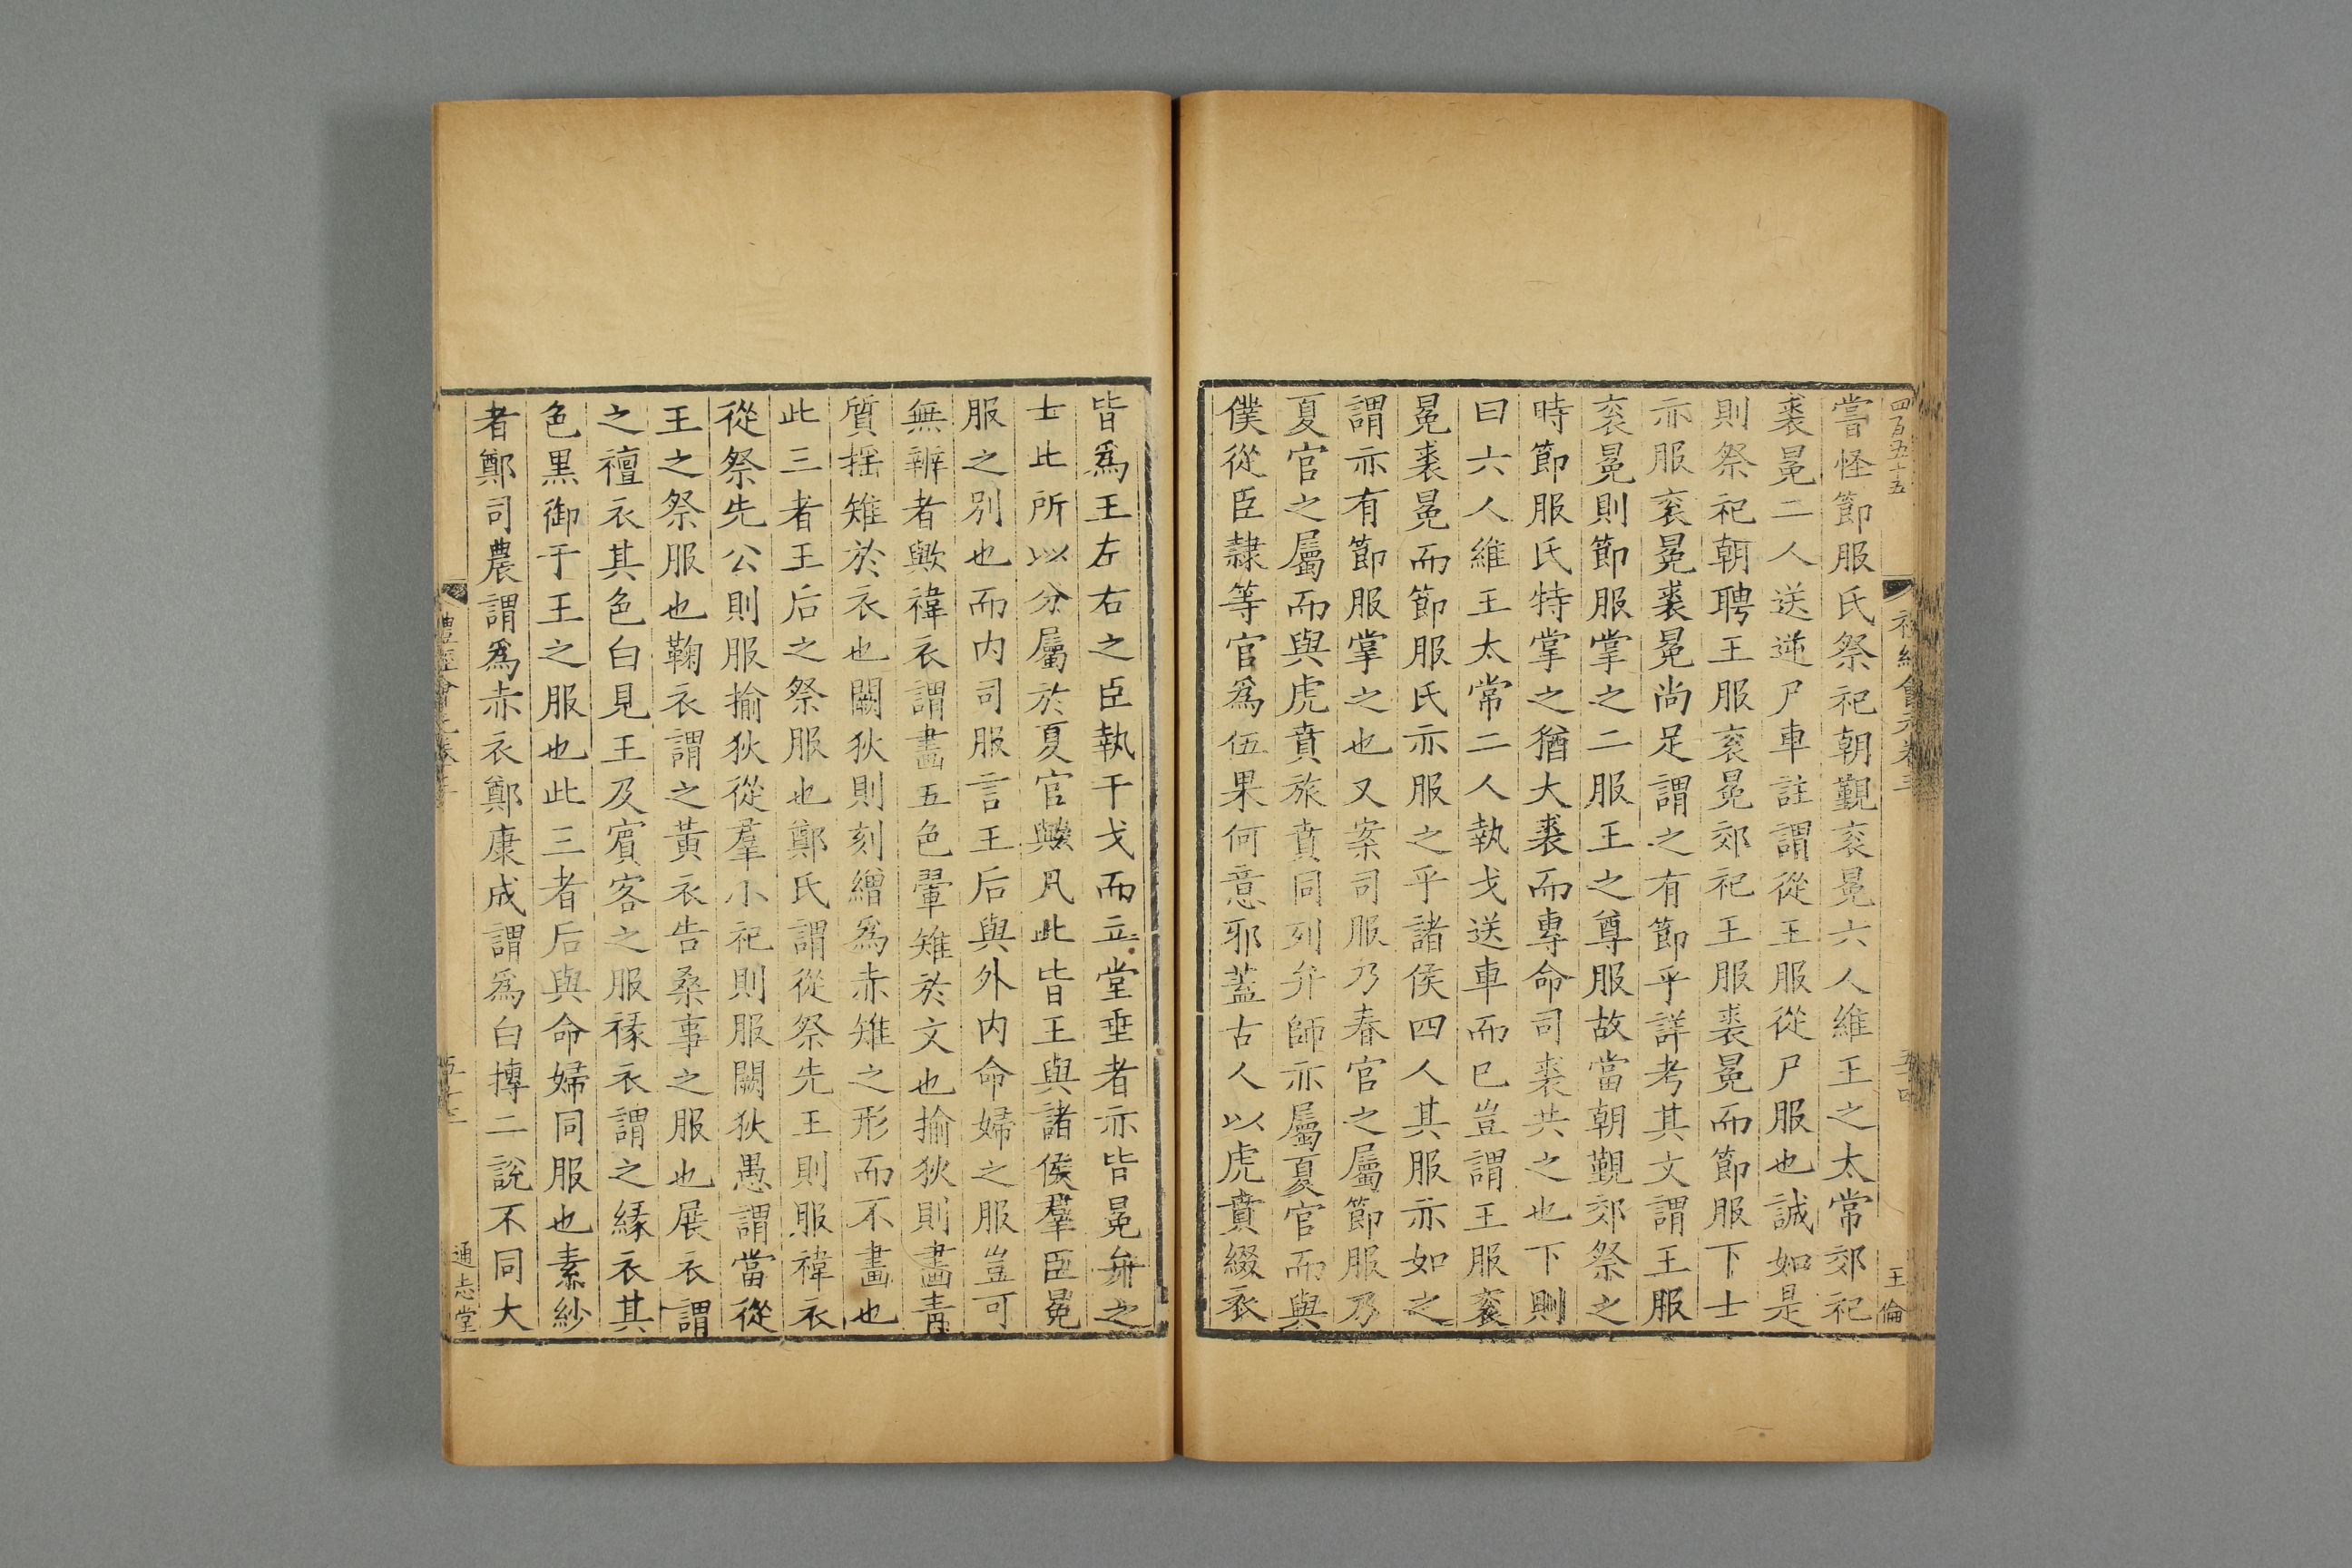 四百五十五
王倫
嘗怪節服氏祭祀朝覲衮冕六人維王之太常郊祀
裘冕二人送逆尸車註謂從王服從尸服也誠如是
則祭祀朝聘王服衮冕郊祀王服裘冕而節服下士
亦服衮冕裘冕尚足謂之有節乎詳考其文謂王服
衮冕則節服掌之二服王之尊服故當朝覲郊祭之
時節服氏特掌之猶大裘而專命司裘共之也下則
曰六人維王太常二人執戈送車而已豈謂王服衮
冕裘冕而節服氏亦服之乎諸侯四人其服亦如之
謂亦有節服掌之也又案司服乃春官之屬節服乃
夏官之屬而與虎賁旅賁同列弁師亦屬夏官而與
僕從臣隸等官爲伍果何意邪蓋古人以虎賁綴衣
皆爲王左右之臣執干戈而立堂垂者亦皆冕弁之
士此所以分屬於夏官歟凡此皆王與諸侯羣臣冕
服之別也而内司服言王后與外内命婦之服豈可
無辨者歟褘衣謂畫五色翬雉於文也揄狄則畫青
質揺雉於衣也闕狄則刻繒爲赤雉之形而不畫也
此三者王后之祭服也鄭氏謂從祭先王則服褘衣
從祭先公則服揄狄從羣小祀則服闕狄愚謂當從
王之祭服也鞠衣謂之黃衣告桑事之服也展衣謂
之襢衣其色白見王及賔客之服禒衣謂之緣衣其
色黒御于王之服也此三者后與命婦同服也素紗
者鄭司農謂爲赤衣鄭康成謂爲白摶二說不同大
通志堂